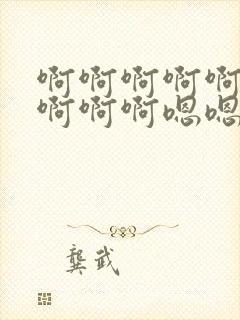 啊啊啊啊啊
啊啊啊嗯嗯
龚武